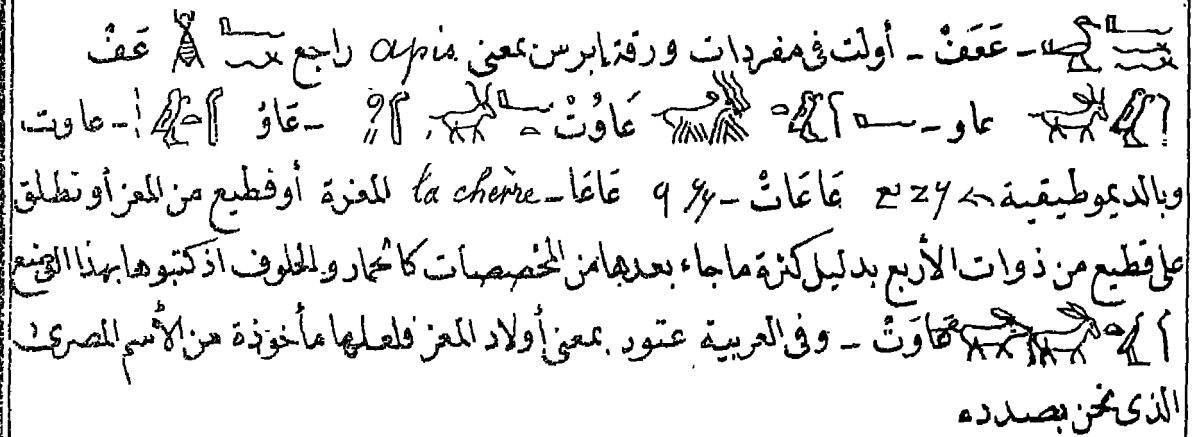 - عَفَفْ - أولت في مفردات ورقة إبرس بمعنى apis راجع عَفْ
عاو - عَاوُتْ - عَاوُ - عاوت
وبالديموطيقية عَاعَاتْ - عَاعَا - la chèvre للمعزة أو قطيع من المعز أو تطلق
على قطيع من ذوات الأربع بدليل كثرة ما جاء بعدها من المخصصات كالحمار والخلوف اذ كتبوها بهذا الوضع
عَاوَتْ - وفى العربية عتود بمعنى أولاد المعز فلعلها مأخوذة من الأسم المصرى
الذى نحن بصدده